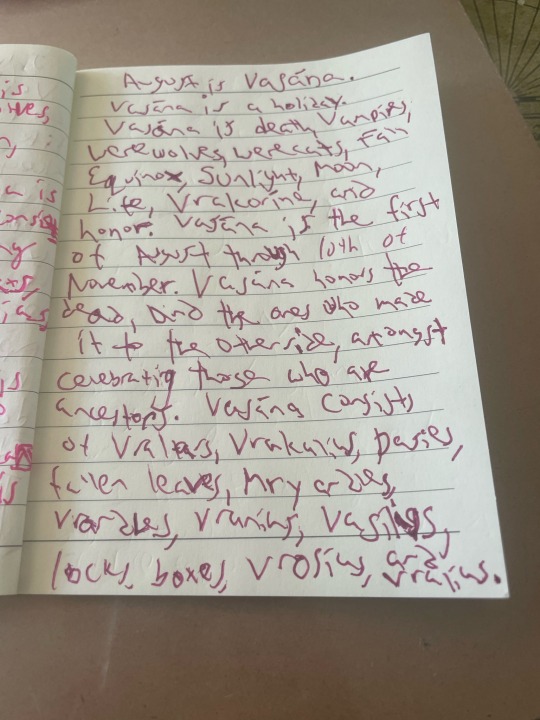 August is Vasāna.
Vasāna is a holiday.
Vasāna is death, Vampires,
werewolves, werecats, Fall
Equinox, Sunlight, Moon,
Life, Vralcorine, and
honor. Vasāna is the first
of August through 10th of
November. Vasāna honors the
dead, and the ones who made
it to the otherside, amongst
celebrating those who are
ancestors. Vasāna consists
of Vralius, Vrakalius, Dasies,
fallen leaves,
Vrardles, Vranius, Vasilius,
locks, boxes, Vrosius, and
Vralius.
is
wes,
a is
Consis
ny